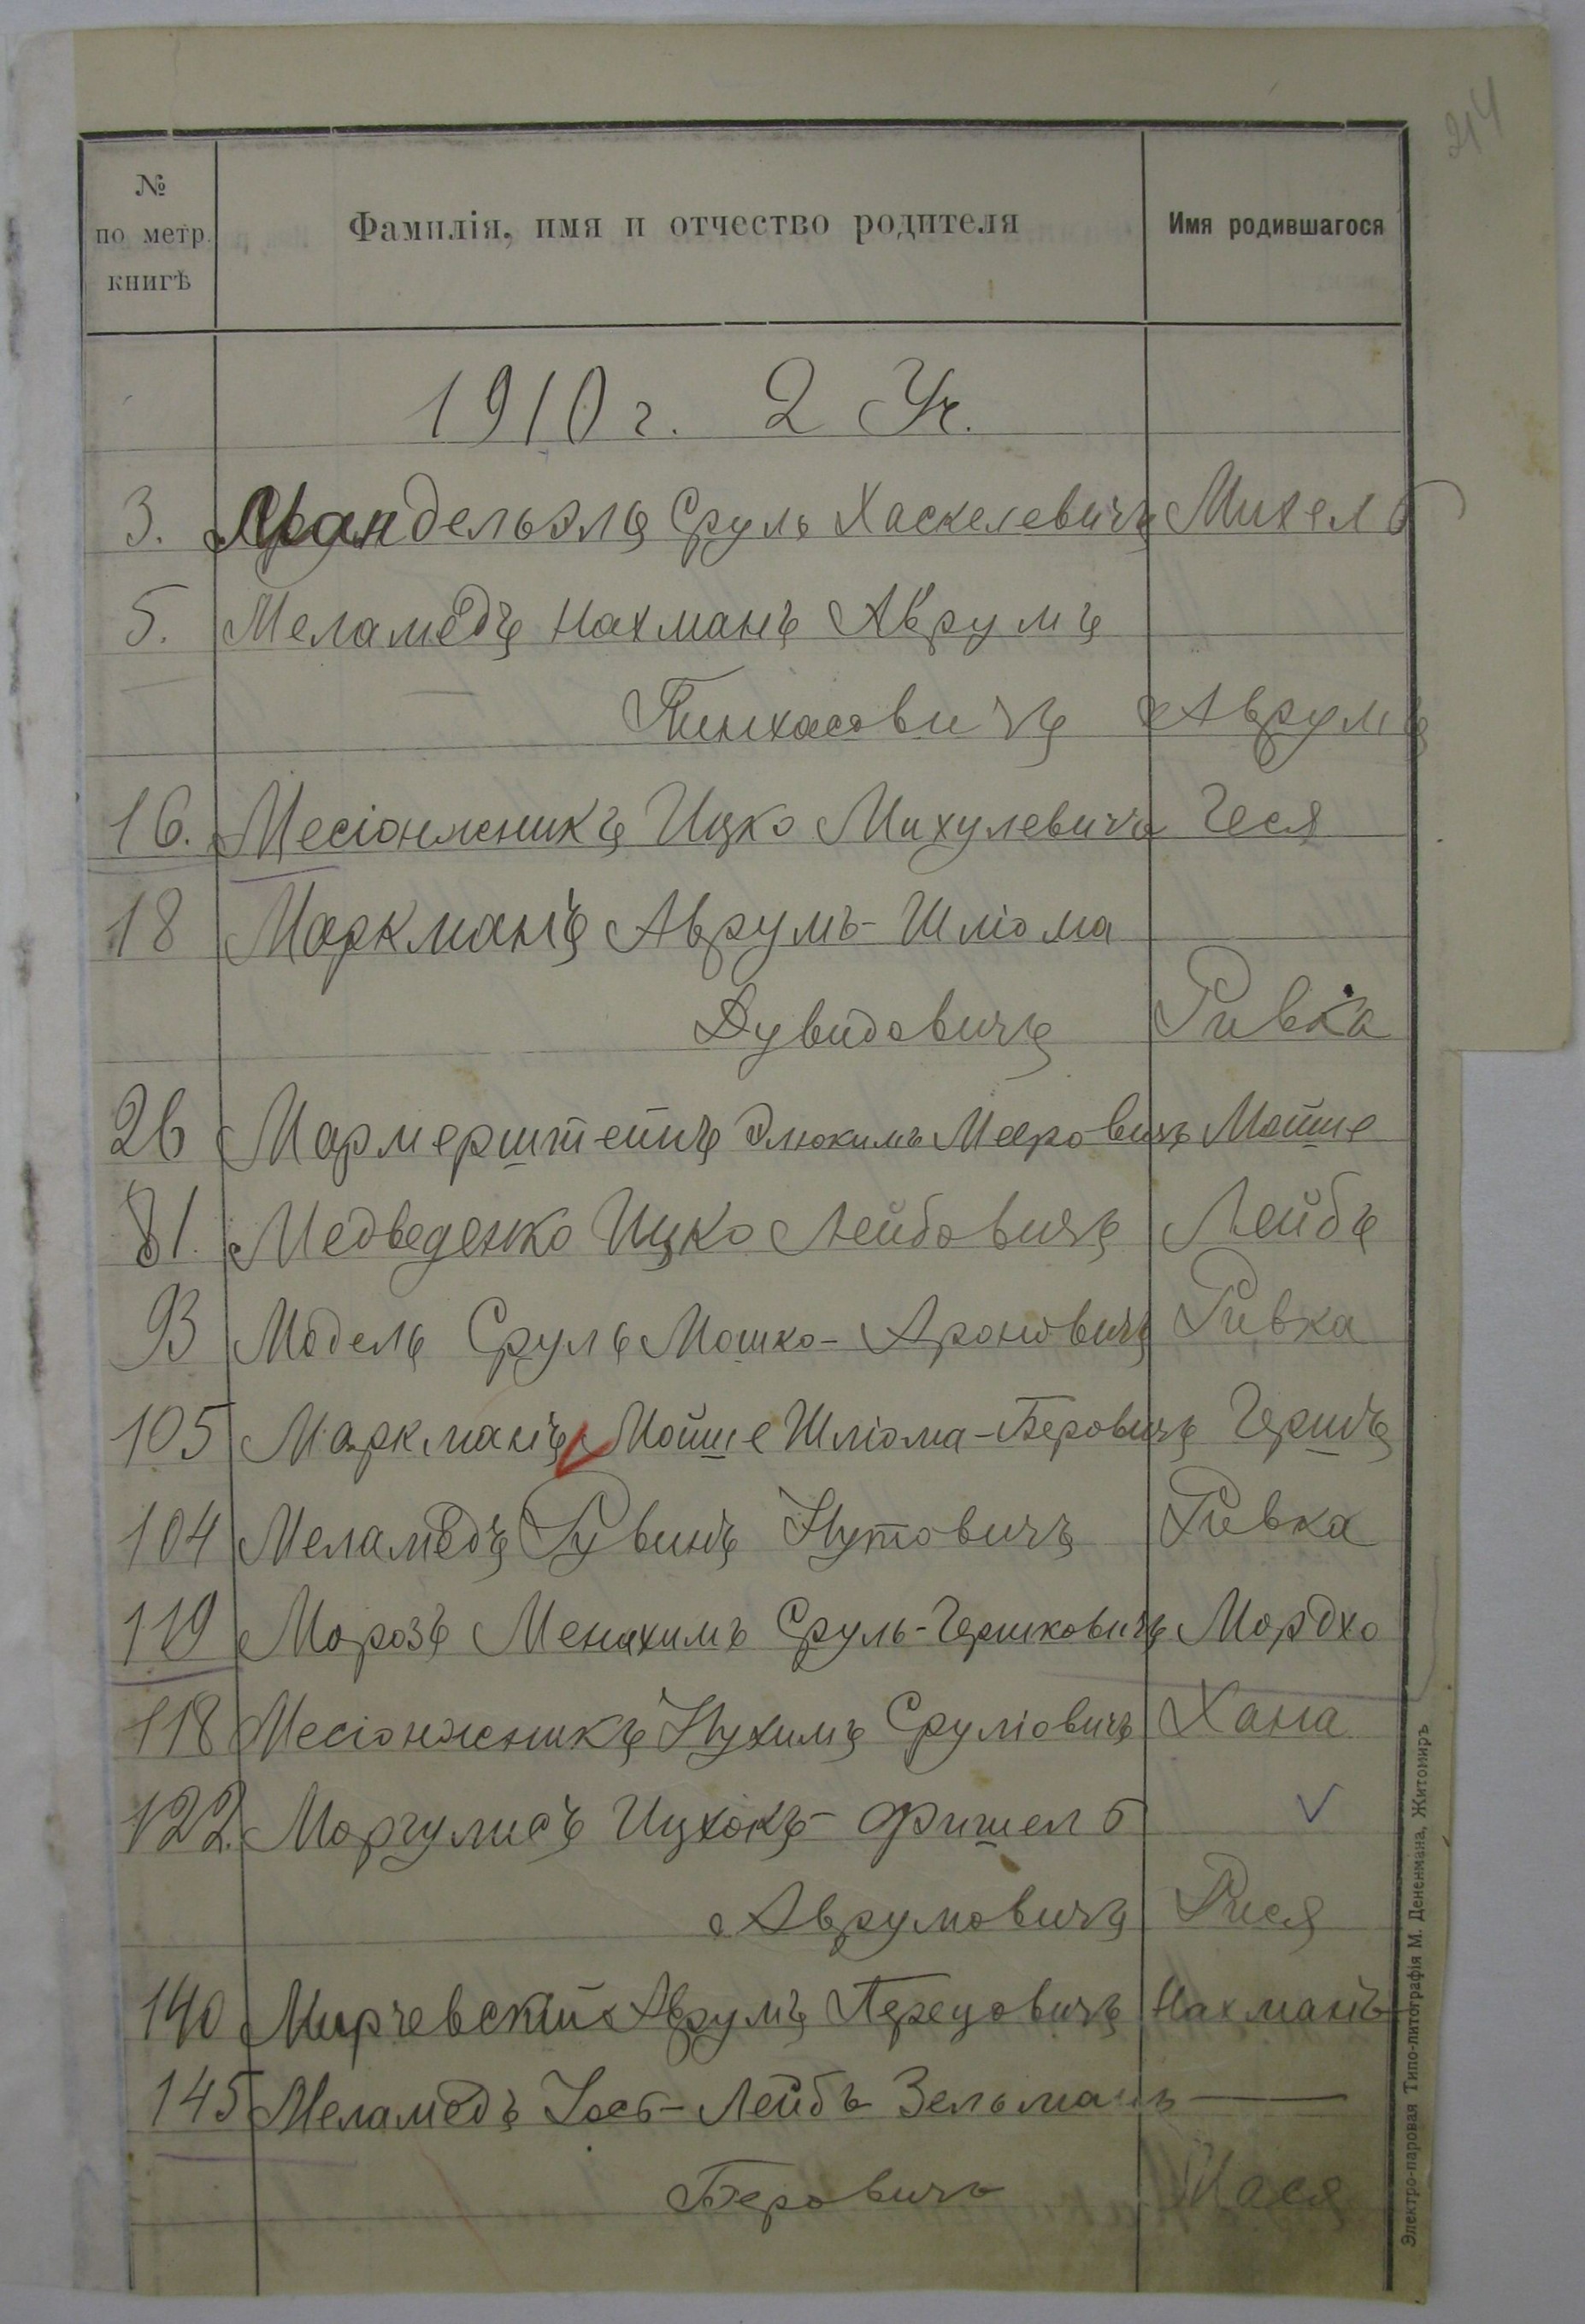 214
№
по метр.
книгѣ
Фамилія, имя и отчество родителя
Имя родившагося
1910 г. 2 Уч.
3. Мандельэлъ Сруль Хаскелевичъ Михель
5. Меламедъ Нахманъ Аврумъ
Пинхасовичъ Аврумъ
16. Месіонжникъ Ицко Михулевичъ Геся
18 Маркманъ Аврумъ-Шліома
Дувидовичъ Ривка
26 Мармерштейнъ Элюкимъ Мееровичъ Мойше
81. Медведенко Ицко Лейбовичъ Лейбъ
93 Модель Сруль Мошко-Ароновичъ Ривка
105 Маркманъ Мойше Шліома-Беровичъ Гершъ
104 Меламедъ Рувинъ Нутовичъ Ривка
119 Морозъ Менахимъ Сруль-Гершковичъ Мордхо
118 Месіонжникъ Нухимъ Срулiовичъ Хана
122. Моргулисъ Ицхокъ-Фишель
Аврумовичъ Рися
140 Мирчевскій Аврумъ Перецовичъ Нахманъ
145 Меламедъ Іось-Лейбъ Зельманъ —
Беровичъ Мася
Электро-паровая Типо-литографія М. Дененмана, Житомиръ